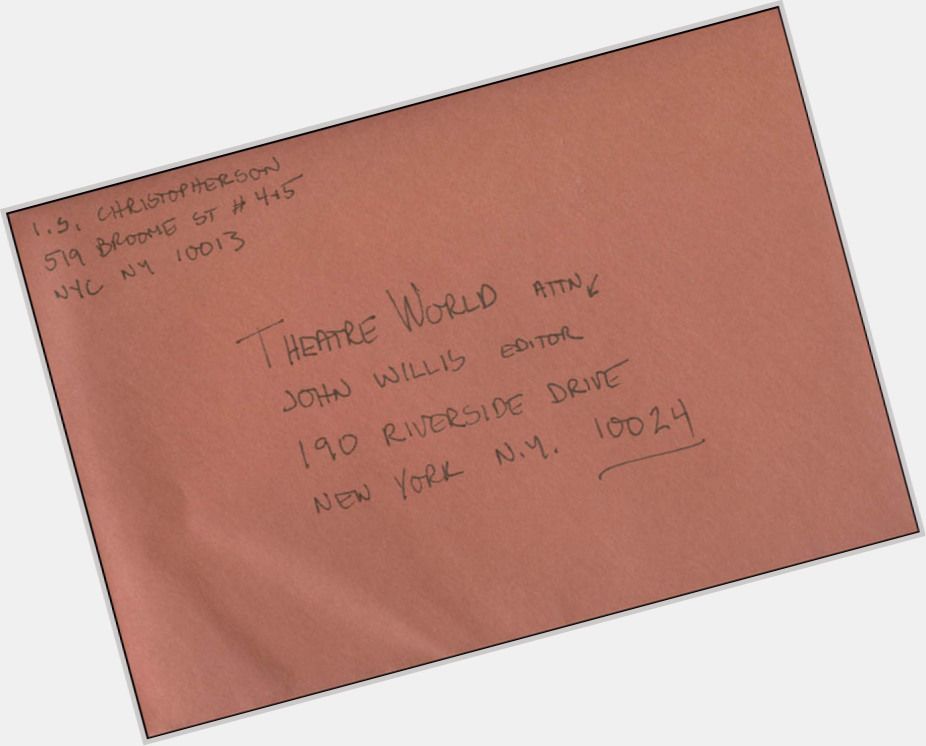 I.S. CHRISTOPHERSON
519 BROOME ST # 4+5
NYC NY 10013
THEATRE WORLD ATTN↙
JOHN WILLIS EDITOR
190 RIVERSIDE DRIVE
NEW YORK N.Y. 10024